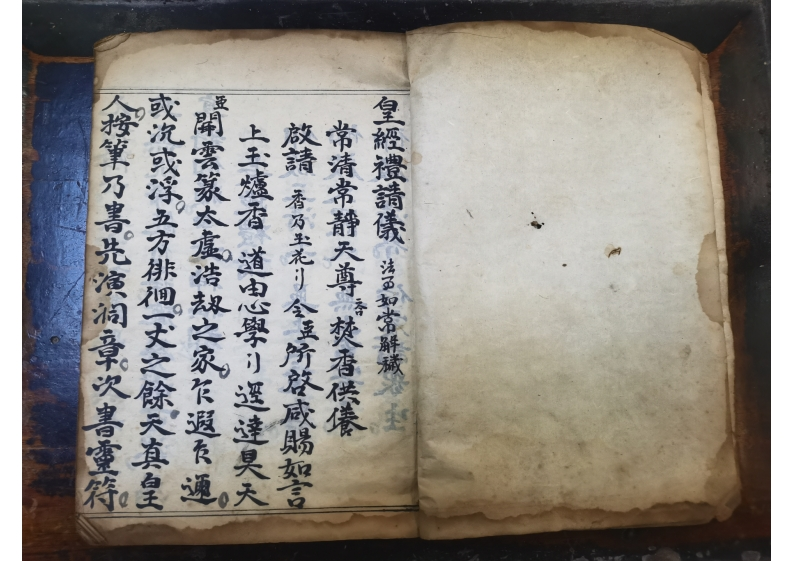 皇經禮請儀 法叓如常解穢
常清常靜天尊 香 焚香供養
啟請 香乃玉花刂 今臣所啓咸賜如言
上玉爐香 道由心學刂 逕達昊天
臣聞雲篆太虛浩劫之家。乍遐乍邇。
或沉或浮。五方徘徊。一丈之餘天真皇
人。按筆乃書。先演洞章。次書靈符。